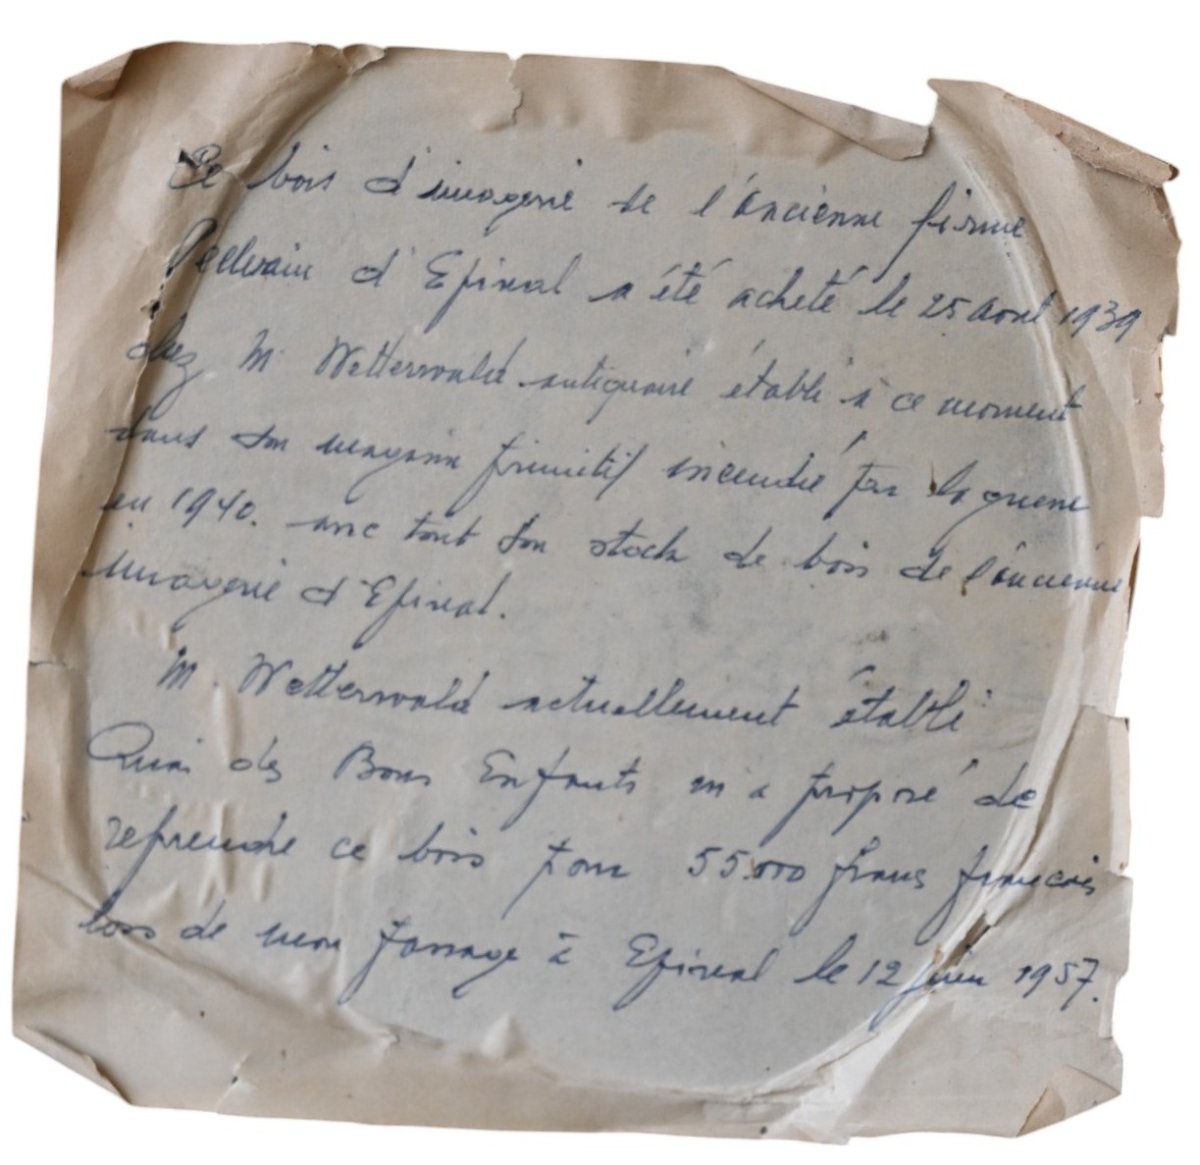 Ce bois d'imagerie de l'ancienne firme
Pellerin d'Epinal a été acheté le 25 Aout 1939
chez M. Wetterwald antiquaire établi à ce moment
dans son magasin primitif incendié par la guerre
en 1940. avec tout son stock de bois de l'ancienne
imagerie d'Epinal.
M. Wetterwald actuellement établi
Quai des Bons Enfants m'a proposé de
reprendre ce bois pour 55.000 francs français
lors de mon passage à Epinal le 12 juin 1957.